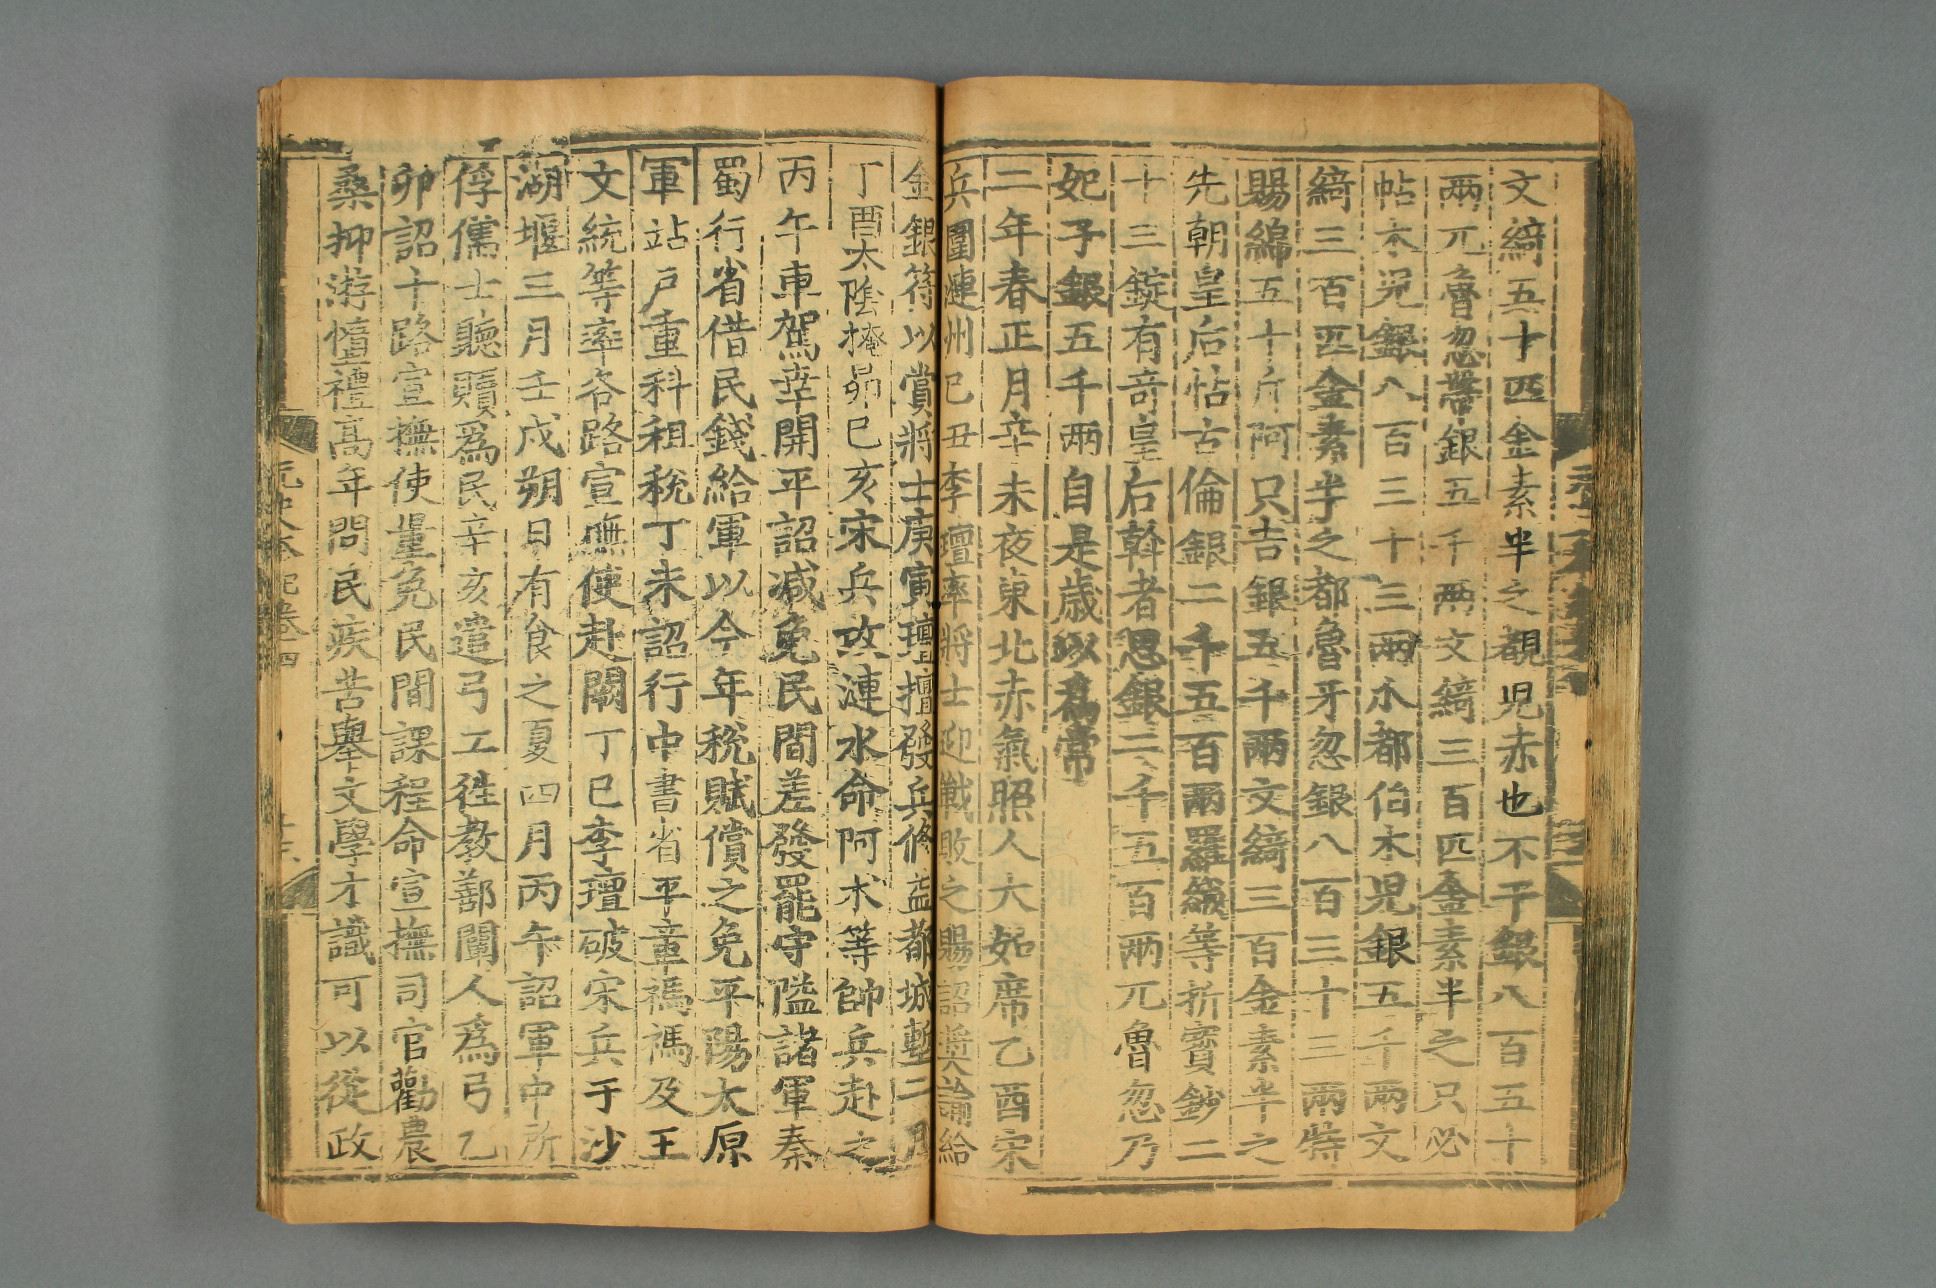 文綺五十匹金素半之覩児赤也不干銀八百五十
兩兀魯忽帶銀五千兩文綺三百匹金素半之只必
帖木兒銀八百三十三兩小都伯木児銀五千兩文
綺三百匹金素半之都魯牙忽銀八百三十三兩特
賜綿五十斤阿只吉銀五千兩文綺三百金素半之
先朝皇后怗古倫銀二千五百兩羅絨等折寶鈔二
十三錠有奇皇后斡者思銀二千五百兩兀魯忽乃
妃子銀五千兩自是歳以爲常
二年春正月辛未夜東北赤氣照人大如席乙酉宋
兵圍漣州己丑李璮率將士迎戰敗之賜詔奨諭給
金銀符以賞將士庚寅璮擅發兵修益都城塹二月
丁酉太隂掩昴己亥宋兵攻漣水命阿术等帥兵赴之
丙午車駕幸開平詔减免民間差發罷守隘諸軍秦
蜀行省借民錢給軍以今年税賦償之免平陽太原
軍站户重科租税丁未詔行中書省平章禡禡及王
文統等率各路宣撫使赴闕丁巳李璮破宋兵于沙
湖堰三月壬戌朔日有食之夏四月丙午詔軍中所
俘儒士聽贖爲民辛亥遣弓工徃教鄯闡人爲弓乙
卯詔十路宣撫使量免民間課程命宣撫司官勸農
桑抑游惰禮高年問民疾苦舉文學才識可以從政
元史本紀卷四